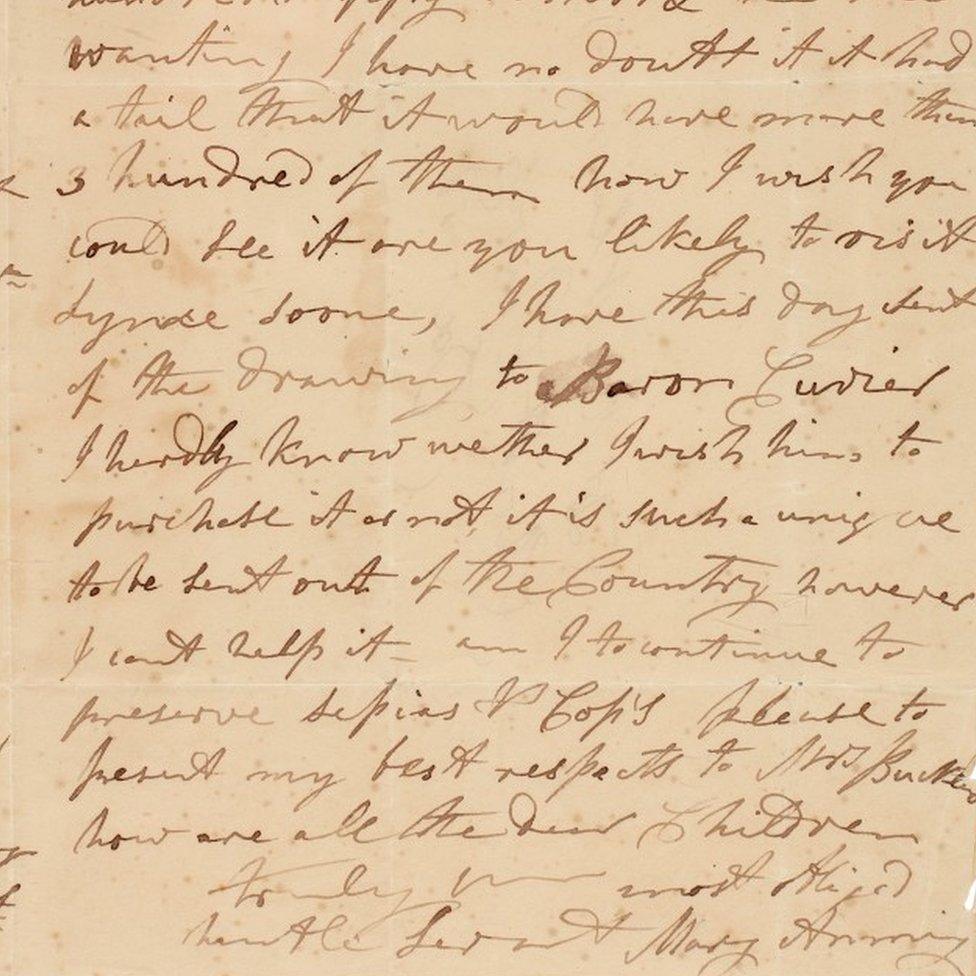 wanting I have no doubt if it had
a tail that it would have more than
3 hundred of them now I wish you
could see it are you likely to visit
Lyme soone, I have this day sent
of the drawing to Baron Cuvier
I herdly know wether I wish him to
purchase it or not it is such a unique
to be sent out of the Country however
I cant help it – am I to continue to
preserve sepias & Cop's please to
present my best respects to Mrs Buckland
how are all the dear Children
truly your most obliged
humble Servant Mary Anning